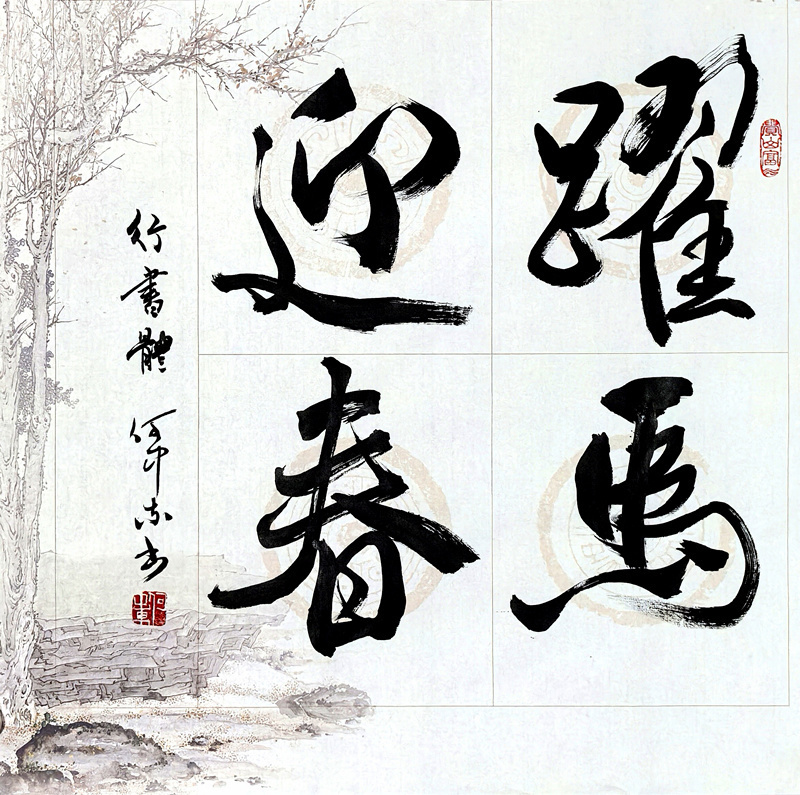 躍馬
迎春
行書體 何軍